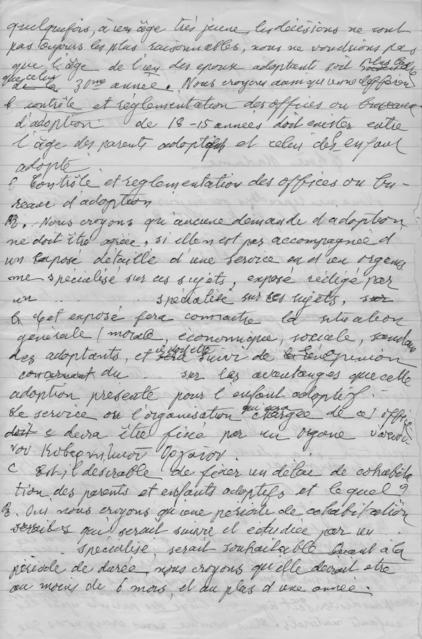 quelquefois, à un âge très jeune les décisions ne sont
pas toujours les plus raisonnables, nous ne voudrions pas
que l'âge de l'un des époux adoptant soit
que celui de la 30me année. Nous croyons aussi qu'une différen
b contrôle et réglementation des offices ou bureaux
d'adoption de 18-15 années doit exister entre
l'âge des parents adoptifs et celui des enfant
adopté.
Contrôle et réglementation des offices ou bu-
reaux d'adoption
R. Nous croyons qu'aucune demande d'adoption
ne doit être agréée, si elle n'est pas accompagnée d'
un exposé détaillé d'une service ou d'un organis
me spécialisé sur ces sujets, exposé rédigé par
un spécialisé sur ses sujets, sur
Cet exposé fera connaître la situation
générale (morale, économique, sociale,
des adoptants, et suivi de opinion
concernant du sur les avantages que cette
adoption présente pour l'enfant adoptif.
Le service ou l'organisation chargée de cet office
doit devra être fixée par un organe
του Κυβερνητικού Οργάνου.
C Est-il désirable de fixer un délai de cohabita
tion des parents et enfants adoptifs et lequel?
R. Oui nous croyons qu'une période de cohabitation
qui serait suivie et étudiée par un
spécialisé, serait souhaitable. Quant à la
période de durée nous croyons qu'elle devrait être
au moins de 6 mois et au plus d'une année.